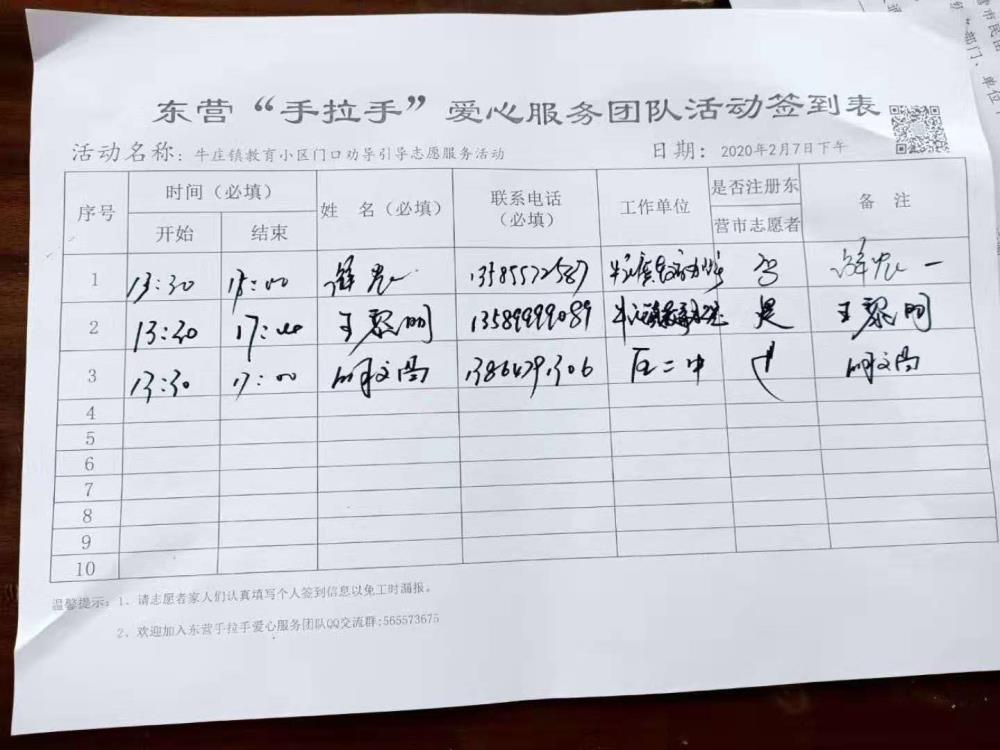 东营“手拉手”爱心服务团队活动签到表
活动名称：牛庄镇教育小区门口劝导引导志愿服务活动 日期：2020年2月7日下午
序号 时间（必填） 姓 名（必填） 联系电话（必填） 工作单位 是否注册东营市志愿者 备 注
开始 结束
1 13:30 13585572587
2 13:30 17:00 王黎明 13589999089 是 王黎明
3 13:30 17:00
4
5
6
7
8
9
10
温馨提示：1、请志愿者家人们认真填写个人签到信息以免工时漏报。
2、欢迎加入东营手拉手爱心服务团队QQ交流群:565573675
部门、单位